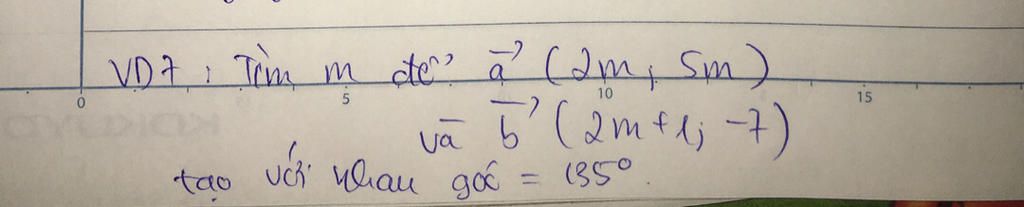 VD7: Tìm m để a⃗ (2m; 5m)
0 5 10 15
và b⃗ (2m+1; -7)
tạo với nhau góc = 135°.